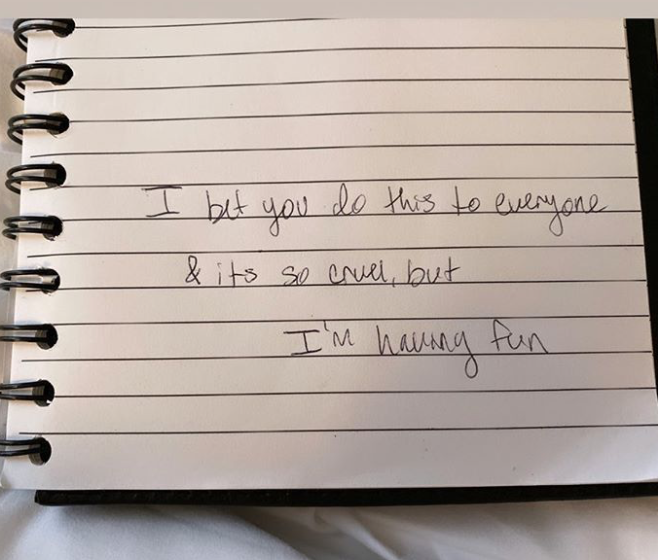 I bet you do this to everyone
& its so cruel, but
I'm having fun